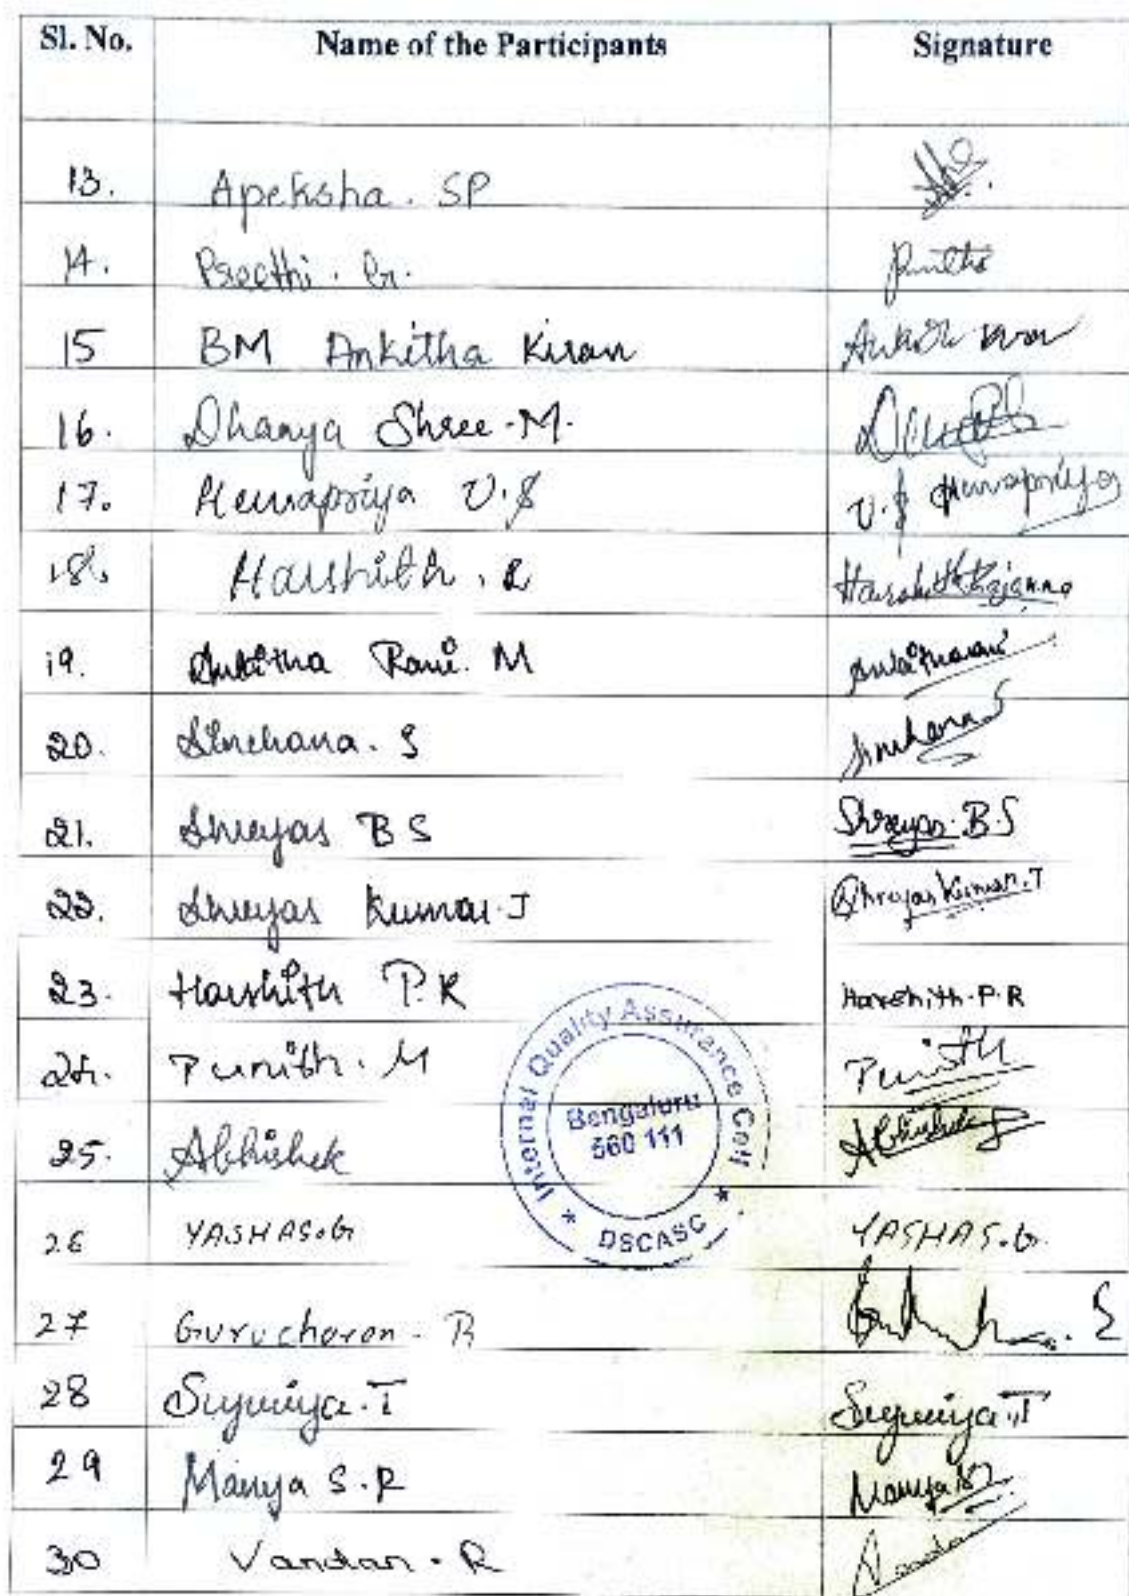 Sl. No. Name of the Participants Signature
13. Apeksha. SP
14. Preethi. G.
15 BM Ankitha Kiran
16. Dhanya Shree.M.
17. Hemapriya V.S V.S Hemapriya
18. Harshith. R Harshith Rajanna
19. Ankitha Rani. M Ankitharani
20. Sinchana. S Sinchana S
21. Shreyas B S Shreyas.B.S
22. Shreyas Kumar.J Shreyas Kumar.J
23. Harshith P.R Harshith.P.R
24. Punith. M Punith
25. Abhishek Abhishek
26 YASHAS.G YASHAS.G.
27 Gurucharan. R
28 Supriya.T Supriya.T
29 Manya S.R Manya SR
30 Vandan. R
Internal Quality Assurance Cell
Bengaluru
560 111
* DSCASC *